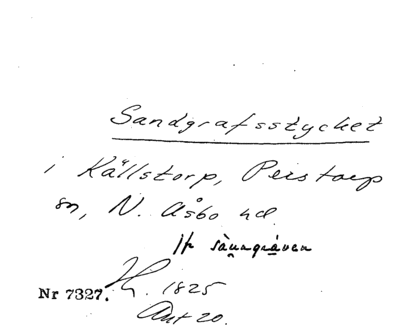 Sandgrafsstycket
i Källstorp, Perstorp
sn, N. Åsbo hd.
sànngràven
Nr 7327. H. 1825
Akt 20.